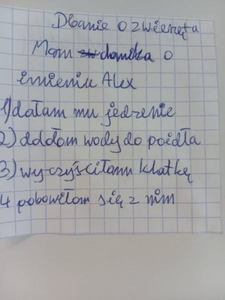 Dbanie o zwierzęta
Mam chomika o
imieniu Alex
1) dałam mu jedzenie
2) dodałam wody do poidła
3) wyczyściłam klatkę
4 pobawiłam się z nim